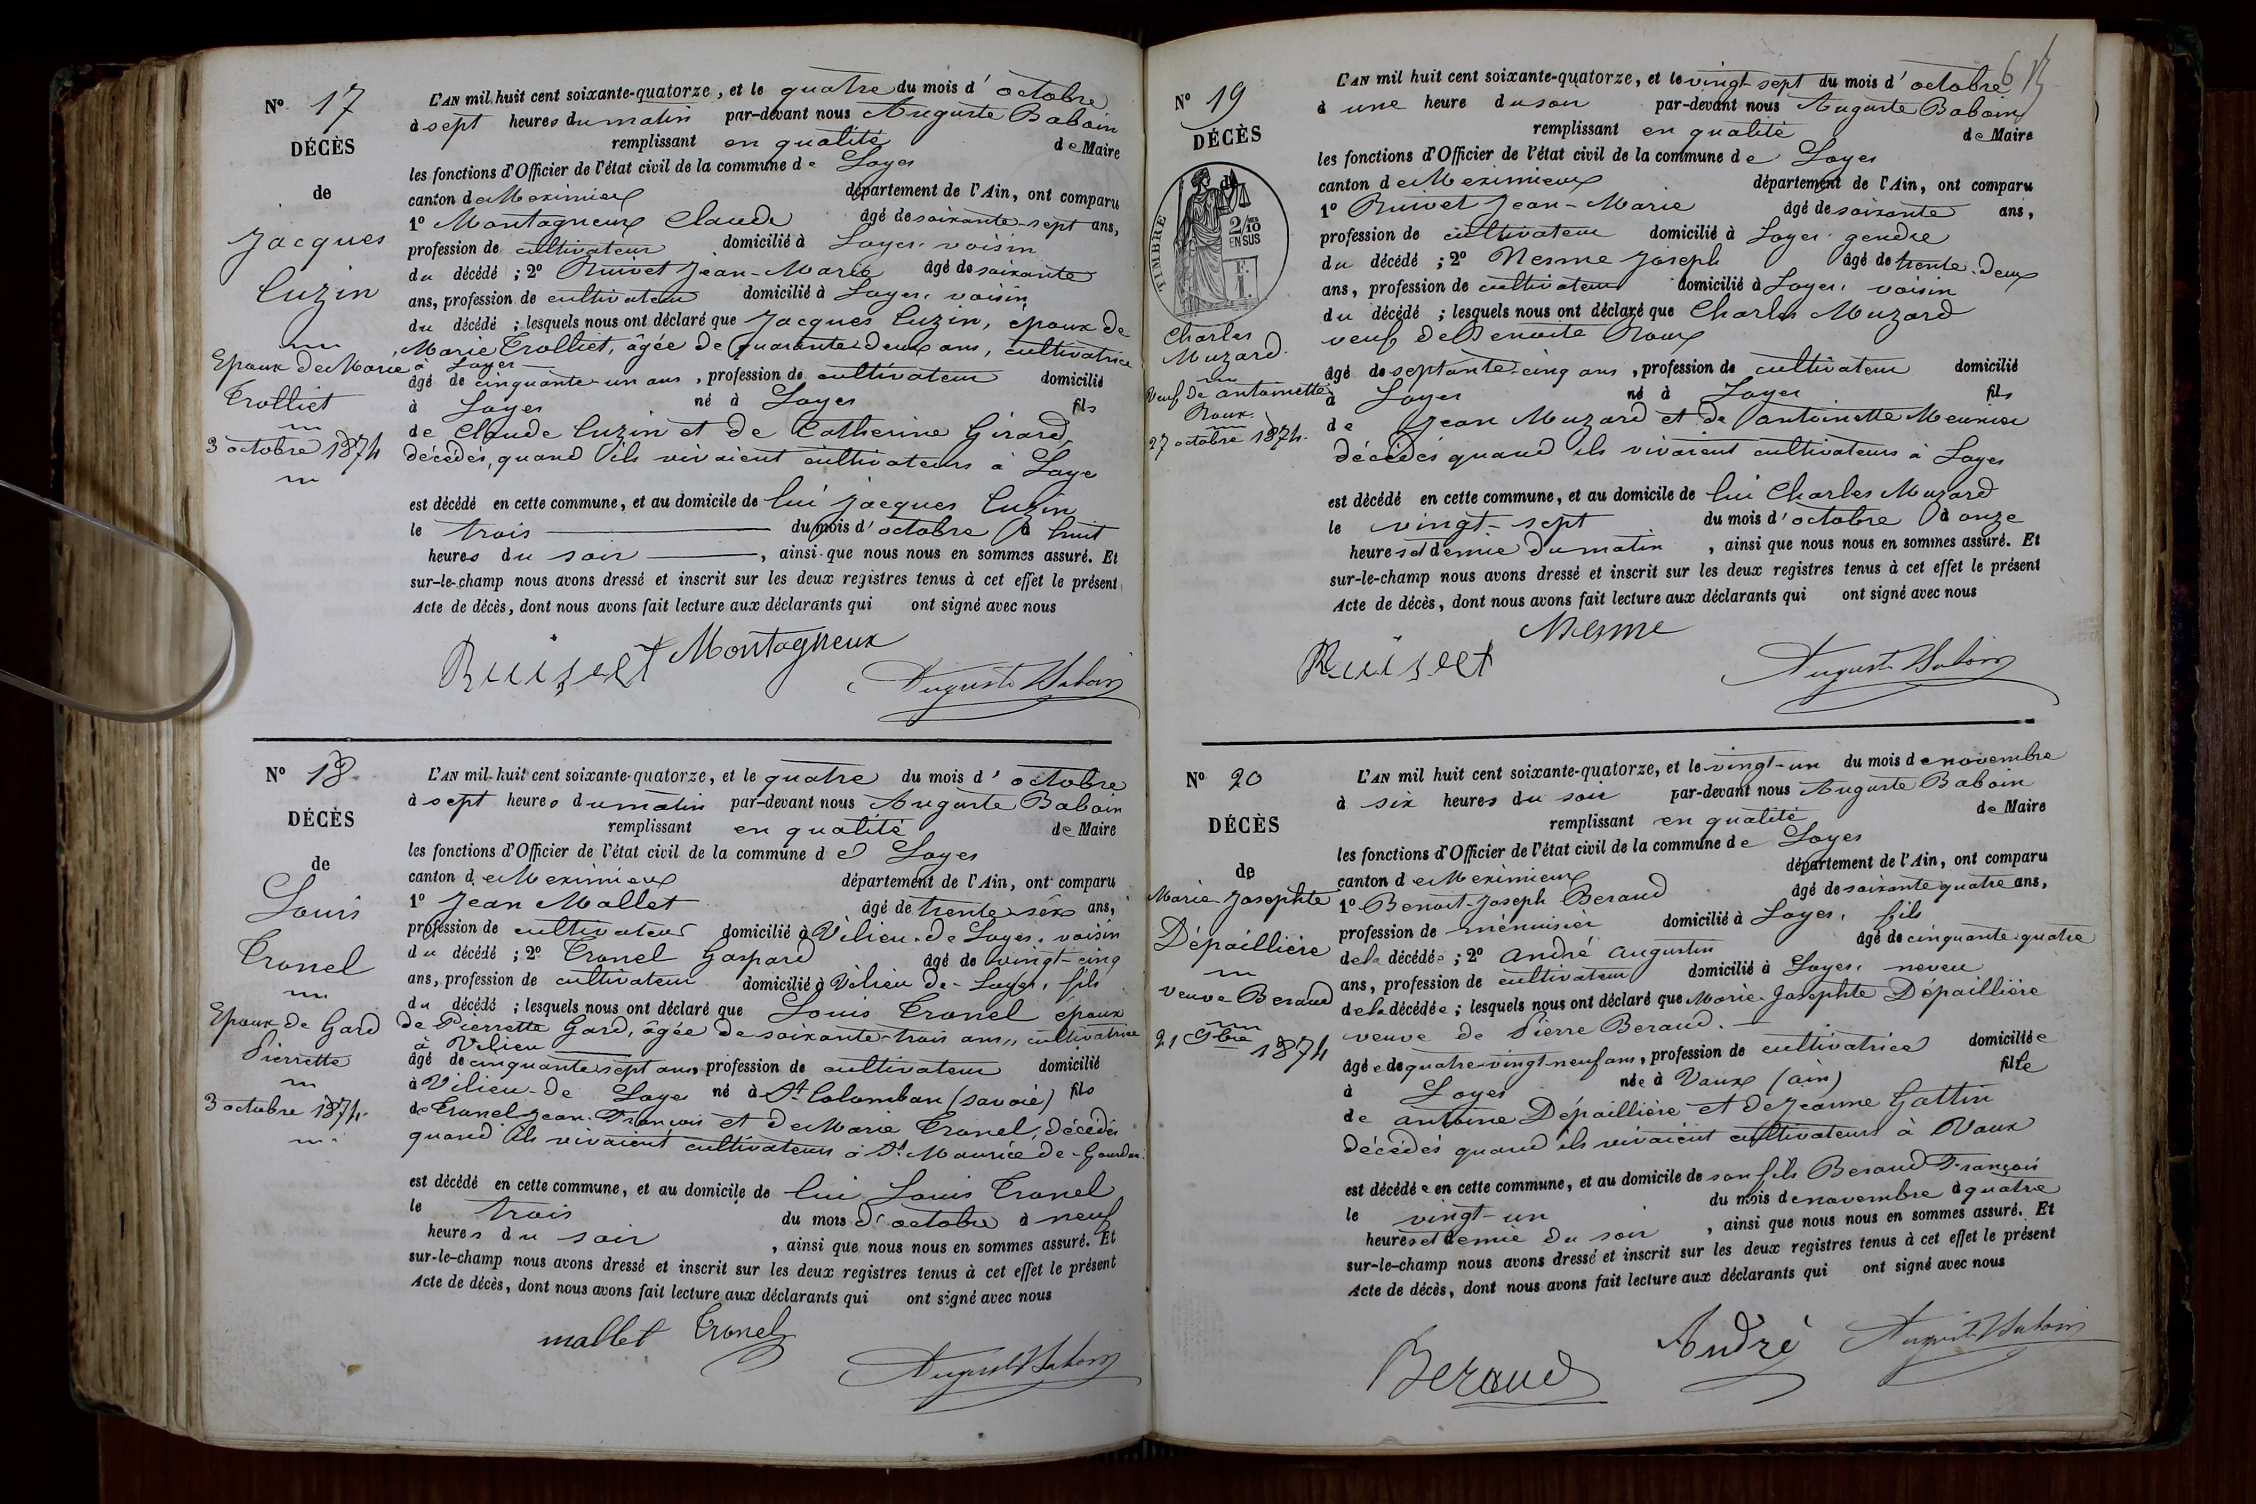 Nº 17
DÉCÈS
de
Jacques
Cuzin
Epoux de Marie
Trolliet
3 octobre 1874
L'AN mil huit cent soixante-quatorze, et le quatre du mois d'octobre
à sept heures du matin par-devant nous Auguste Baboin
remplissant en qualité de Maire
les fonctions d'Officier de l'état civil de la commune de Loyes
canton de Meximieux département de l'Ain, ont comparu
1º Montagneux Claude âgé de soixante-sept ans,
profession de cultivateur domicilié à Loyes, voisin
du décédé ; 2º Ruivet Jean-Marie âgé de soixante
ans, profession de cultivateur domicilié à Loyes, voisin
du décédé ; lesquels nous ont déclaré que Jacques Cuzin, époux de
Marie Trolliet, âgée de quarante-deux ans, cultivatrice
à Loyes
âgé de cinquante-un ans, profession de cultivateur domicilié
à Loyes né à Loyes fils
de Claude Cuzin et de Catherine Girard
décédés, quand ils vivaient cultivateurs à Loyes
est décédé en cette commune, et au domicile de lui Jacques Cuzin
le trois du mois d'octobre à huit
heures du soir, ainsi que nous nous en sommes assuré. Et
sur-le-champ nous avons dressé et inscrit sur les deux registres tenus à cet effet le présent
Acte de décès, dont nous avons fait lecture aux déclarants qui ont signé avec nous
Ruivet Montagneux
Auguste Baboin
Nº 18
DÉCÈS
de
Louis
Tronel
Epoux de Gard
Pierrette
3 octobre 1874.
L'AN mil huit cent soixante-quatorze, et le quatre du mois d'octobre
à sept heures du matin par-devant nous Auguste Baboin
remplissant en qualité de Maire
les fonctions d'Officier de l'état civil de la commune de Loyes
canton de Meximieux département de l'Ain, ont comparu
1º Jean Mallet âgé de trente-six ans,
profession de cultivateur domicilié à Vilieu-de Loyes, voisin
du décédé ; 2º Tronel Gaspard âgé de vingt-cinq
ans, profession de cultivateur domicilié à Vilieu de-Loyes, fils
du décédé ; lesquels nous ont déclaré que Louis Tronel époux
de Pierrette Gard, âgée de soixante-trois ans, cultivatrice
à Vilieu
âgé de cinquante-sept ans, profession de cultivateur domicilié
à Vilieu-de Loyes né à St Colomban (savoie) fils
de Tronel Jean-François et de Marie Tronel, décédés
quand ils vivaient cultivateurs à St Maurice-de-Gourdan.
est décédé en cette commune, et au domicile de lui Louis Tronel
le trois du mois d'octobre à neuf
heures du soir, ainsi que nous nous en sommes assuré. Et
sur-le-champ nous avons dressé et inscrit sur les deux registres tenus à cet effet le présent
Acte de décès, dont nous avons fait lecture aux déclarants qui ont signé avec nous
mallet Tronel
Auguste Baboin
Nº 19
DÉCÈS
de
TIMBRE
2/10
EN SUS
Charles
Muzard.
Veuf de antoinette
Roux.
27 octobre 1874.
L'AN mil huit cent soixante-quatorze, et le vingt-sept du mois d'octobre
à une heure du soir par-devant nous Auguste Baboin
remplissant en qualité de Maire
les fonctions d'Officier de l'état civil de la commune de Loyes
canton de Meximieux département de l'Ain, ont comparu
1º Ruivet Jean-Marie âgé de soixante ans,
profession de cultivateur domicilié à Loyes gendre
du décédé ; 2º Nesme Joseph âgé de trente-deux
ans, profession de cultivateur domicilié à Loyes, voisin
du décédé ; lesquels nous ont déclaré que Charles Muzard
veuf de Benoite Roux
âgé de septante-cinq ans, profession de cultivateur domicilié
à Loyes né à Loyes fils
de Jean Muzard et de antoinette Meunier
décédés quand ils vivaient cultivateurs à Loyes
est décédé en cette commune, et au domicile de lui Charles Muzard
le vingt-sept du mois d'octobre à onze
heures et demie du matin, ainsi que nous nous en sommes assuré. Et
sur-le-champ nous avons dressé et inscrit sur les deux registres tenus à cet effet le présent
Acte de décès, dont nous avons fait lecture aux déclarants qui ont signé avec nous
Nesme
Ruivet Auguste Baboin
Nº 20
DÉCÈS
de
Marie-Josephte
Dépaillière
veuve Beraud
21 9bre 1874
L'AN mil huit cent soixante-quatorze, et le vingt-un du mois de novembre
à six heures du soir par-devant nous Auguste Baboin
remplissant en qualité de Maire
les fonctions d'Officier de l'état civil de la commune de Loyes
canton de Meximieux département de l'Ain, ont comparu
1º Benoit-Joseph Beraud âgé de soixante quatre ans,
profession de menuisier domicilié à Loyes, fils
de la décédée ; 2º André Augustin âgé de cinquante-quatre
ans, profession de cultivateur domicilié à Loyes, neveu
de la décédée ; lesquels nous ont déclaré que Marie-Josephte Dépaillière
veuve de Pierre Beraud.
âgée de quatre-vingt-neuf ans, profession de cultivatrice domiciliée
à Loyes née à Vaux (ain) fille
de antoine Dépaillière et de Jeanne Gattin
décédés quand ils vivaient cultivateurs à Vaux
est décédée en cette commune, et au domicile de son fils Beraud François
le vingt-un du mois de novembre à quatre
heures et demie du soir, ainsi que nous nous en sommes assuré. Et
sur-le-champ nous avons dressé et inscrit sur les deux registres tenus à cet effet le présent
Acte de décès, dont nous avons fait lecture aux déclarants qui ont signé avec nous
Beraud André Auguste Baboin